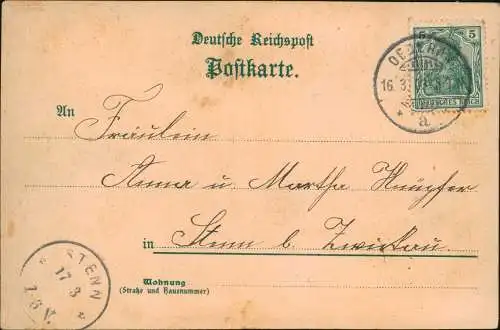 Deutsche Reichspost
Postkarte.
5 5
16. 3.
a
An
Fräulein
Anna u. Martha Knüpfer
in Stenn b. Zwickau.
Wohnung
(Straße und Hausnummer)
STENN
17 3
7-8 V.